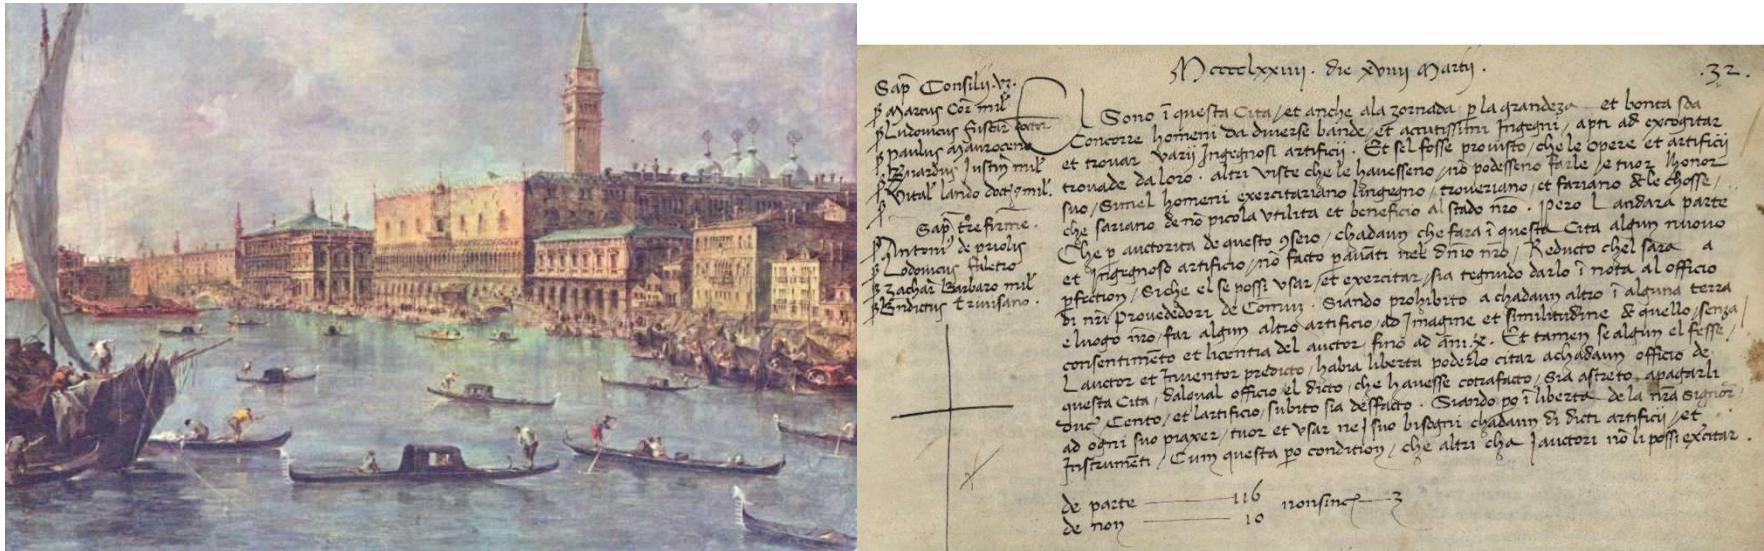 Mcccclxxiiii . die xviiii Martii .
.32.
Sap Consilii
Marcus Cor mil
Ludovicus fuscar doctor
paulus Mauroceno
Justin mil
Vital lando doct mil
Sap
Antoni de priolis
Lodovicus faletro
Zachar Barbaro mil
Bndictus trivisano .
El Sono ĩ questa Cita / et anche ala zornada p la grandeza et bonta soa
Concorre homeni da diverse bande / et accutissimi Ingegni / apti ad excogitar
et trovar varii Ingegnosi artificii . Et sel fosse provisto / che le opere et artificii
trovade da loro . altri viste che le havesseno / nõ podesseno farle / e tuor lhonor
suo / Simel homeni exercitariano lingegno / troveriano / et fariano dele chosse /
che sariano de nõ picola utilita et beneficio al stado nr̃o . Pero Landara parte
Che p auctorita de questo / chadaun che fara ĩ questa Cita algun nuovo
et Ingegnoso artificio / nõ facto nel nr̃o / Reducto chel sara a
pfection / Siche el se possi usar / et exercitar / sia tegnudo darlo ĩ nota al officio
di nr̃i Provededori de Comun . Siando prohibito a chadaun altro ĩ alguna terra
e luogo nr̃o / far algun altro artificio / ad Imagine et similitudine de quello / senza
consentimẽto et licentia del auctor / fino ad . Et tamen se algun el fesse /
Lauctor et Inventor predicto / habia liberta poderlo citar achadaun officio de
questa Cita / dalqual officio el dicto / che havesse cõtrafacto / Sia astreto apagarli
duc Cento / et lartificio / subito sia desfacto . Siando po ĩ liberta de la nr̃a Signor
ad ogni suo piaxer / tuor et usar ne I suo bisogni chadaun di dicti artificii / et
Instrumẽti / Cum questa po condition / che altri cha I auctori nõ li possi exercitar .
de parte 116
de non 10
3